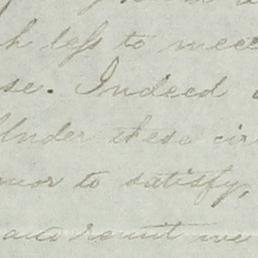 less to meet
se. Indeed
Under these cir
to satisfy,
and remit me